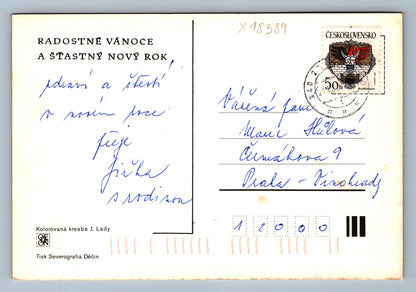 X18389
RADOSTNÉ VÁNOCE
A ŠŤASTNÝ NOVÝ ROK
zdraví a štěstí
v novém roce
přeje
Jiřka
s rodinou
Kolorovaná kresba J. Lady
Tisk Severografia Děčín
ČESKOSLOVENSKO
50h
Vážená paní
Marie
Čermákova 9
Praha - Vinohrady
12000